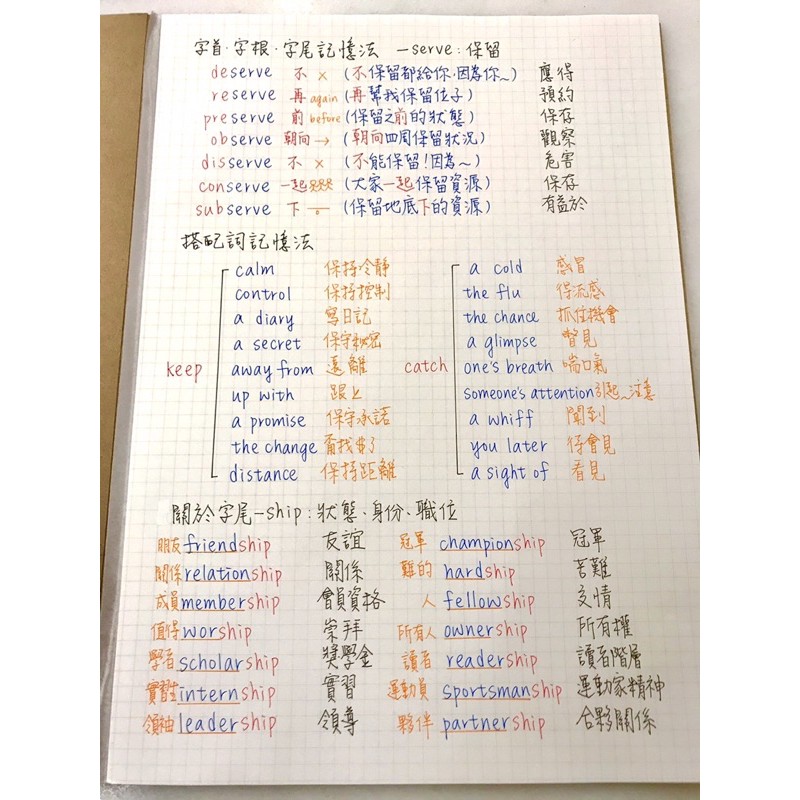 字首·字根·字尾記憶法 —serve:保留
deserve 不 × (不保留都給你,因為你~) 應得
reserve 再 again (再幫我保留位子) 預約
preserve 前 before (保留之前的狀態) 保存
observe 朝向 → (朝向四周保留狀況) 觀察
disserve 不 × (不能保留!因為~) 危害
conserve 一起 (大家一起保留資源) 保存
subserve 下 (保留地底下的資源) 有益於
搭配詞記憶法
keep
calm 保持冷靜
control 保持控制
a diary 寫日記
a secret 保守秘密
away from 遠離
up with 跟上
a promise 保守承諾
the change 甭找$了
distance 保持距離
catch
a cold 感冒
the flu 得流感
the chance 抓住機會
a glimpse 瞥見
one's breath 喘口氣
someone's attention 引起~注意
a whiff 聞到
you later 待會見
a sight of 看見
關於字尾—ship:狀態、身份、職位
朋友 friendship 友誼 冠軍 championship 冠軍
關係 relationship 關係 難的 hardship 苦難
成員 membership 會員資格 人 fellowship 交情
值得 worship 崇拜 所有人 ownership 所有權
學者 scholarship 獎學金 讀者 readership 讀者階層
實習生 internship 實習 運動員 sportsmanship 運動家精神
領袖 leadership 領導 夥伴 partnership 合夥關係